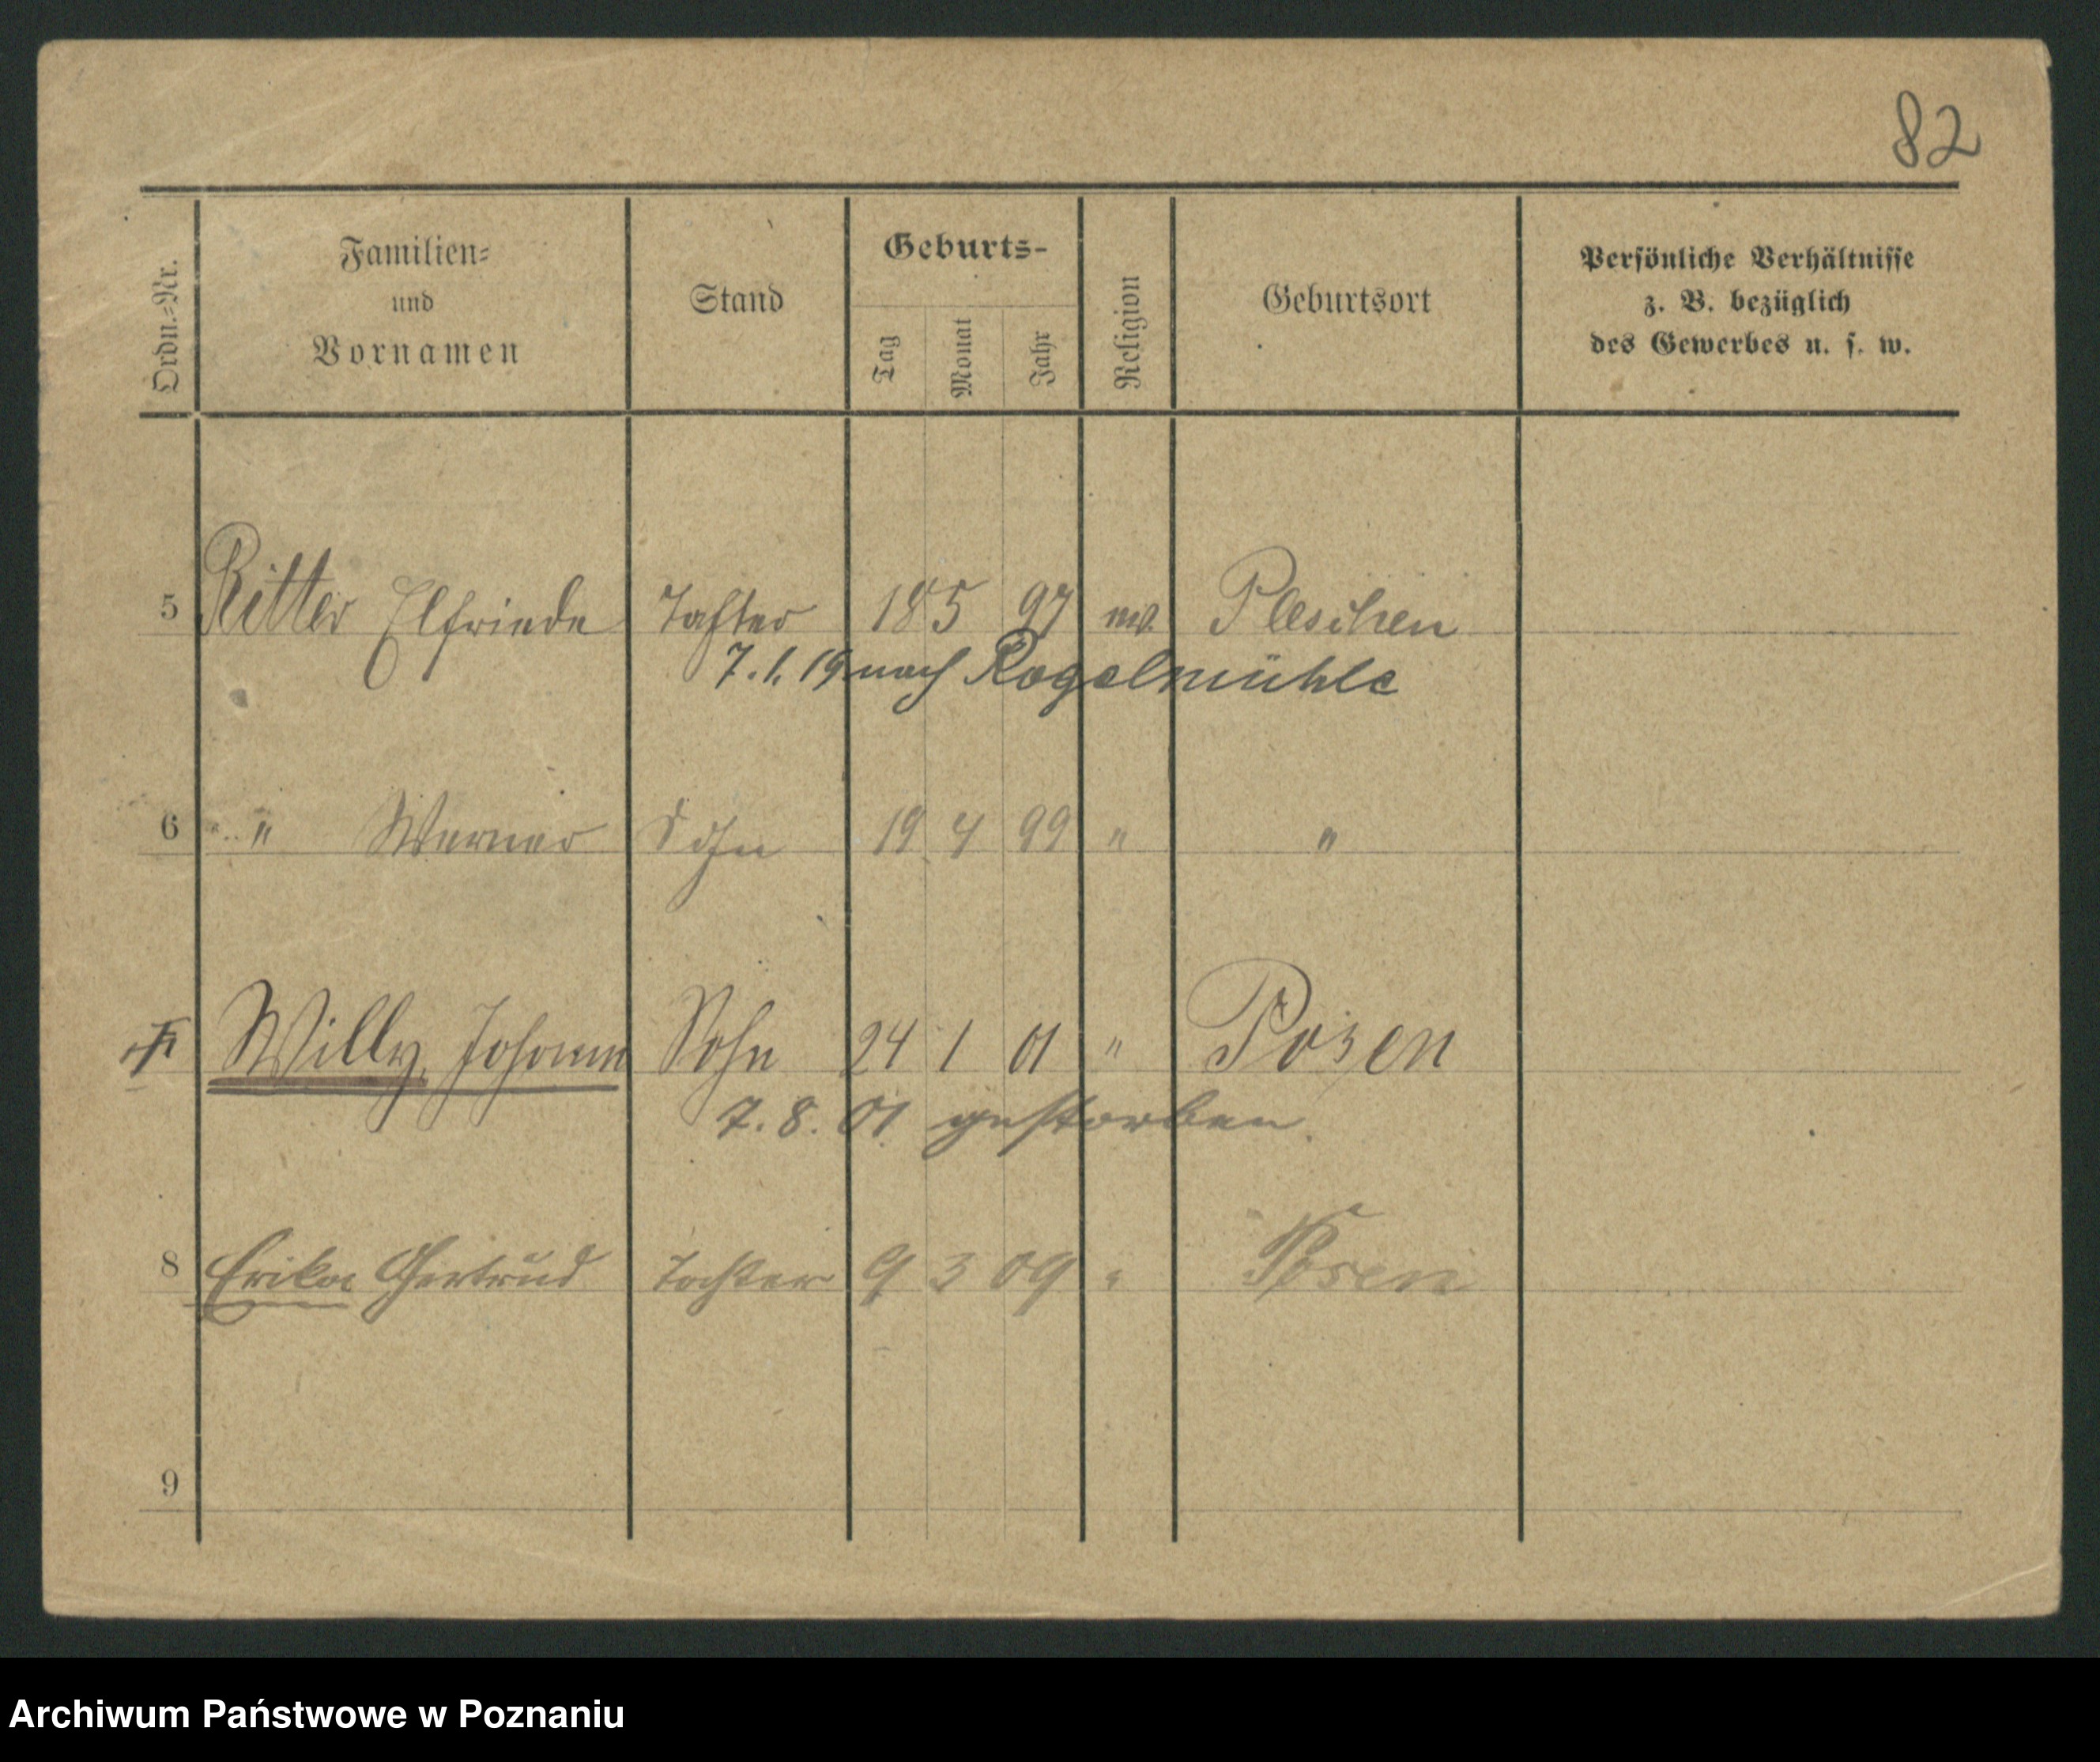 82
Ordn.-Nr. Familien- und Vornamen Stand Geburts- Tag Monat Jahr Religion Geburtsort Persönliche Verhältnisse z. B. bezüglich des Gewerbes u. s. w.
5 Ritter Elfriede Tochter 18 5 97 ev. Pleschen
7. 1. 19 nach Kogelmühle
6 " Werner Sohn 19 4 99 " "
Willy, Johann Sohn 24 1 01 " Posen
7. 8. 01. gestorben.
8 Erika Gertrud Tochter 9 3 09 " Posen
9
Archiwum Państwowe w Poznaniu